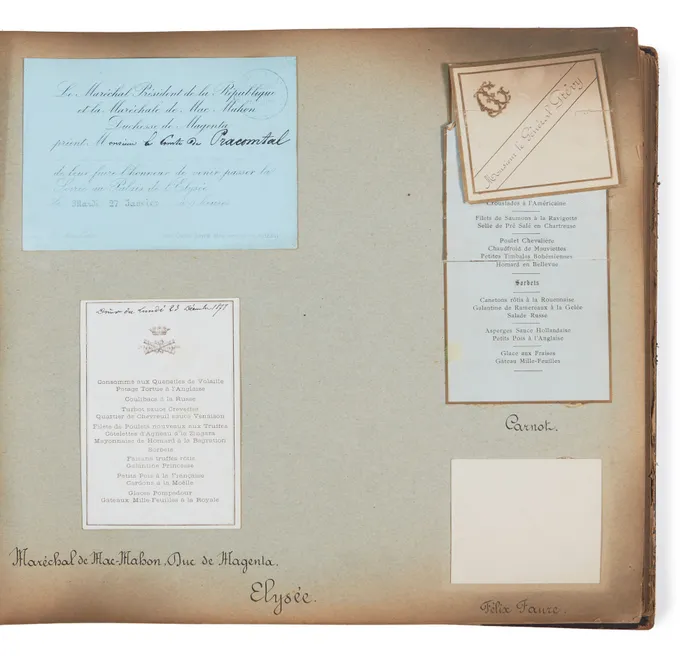 Le Maréchal Président de la République
et la Maréchale de Mac Mahon
Duchesse de Magenta
prient Monsieur le Comte de Pracomtal
de leur faire l'honneur de venir passer la
Soirée au Palais de l'Elysée
le Mardi 27 Janvier
Dîner du Lundi 23 Décembre
Consommé aux Quenelles de Volaille
Potage Tortue à l'Anglaise
Coulibacs à la Russe
Turbot sauce Crevettes
Quartier de Chevreuil sauce Venaison
Filets de Poulets nouveaux aux Truffes
Cotelettes d'Agneau à la
Mayonnaise de Homard à la Bagration
Sorbets
Faisans truffés rôtis
Galantine Princesse
Petits Pois à la Française
Cardons à la Moëlle
Glaces Pompadour
Gateaux Mille-Feuilles à la Royale
Maréchal de Mac-Mahon, Duc de Magenta.
Elysée.
Monsieur le Général Grévy
Croustades à l'Américaine
Filets de Saumons à la Ravigotte
Selle de Pré Salé en Chartreuse
Poulet Chevalière
Chaudfroid de Mauviettes
Petites Timbales Bohémiennes
Homard en Bellevue
Sorbets
Canetons rôtis à la Rouennaise
Galantine de Ramereaux à la Gelée
Salade Russe
Asperges Sauce Hollandaise
Petits Pois à l'Anglaise
Glace aux Fraises
Gâteau Mille-Feuilles
Carnot.
Félix Faure.